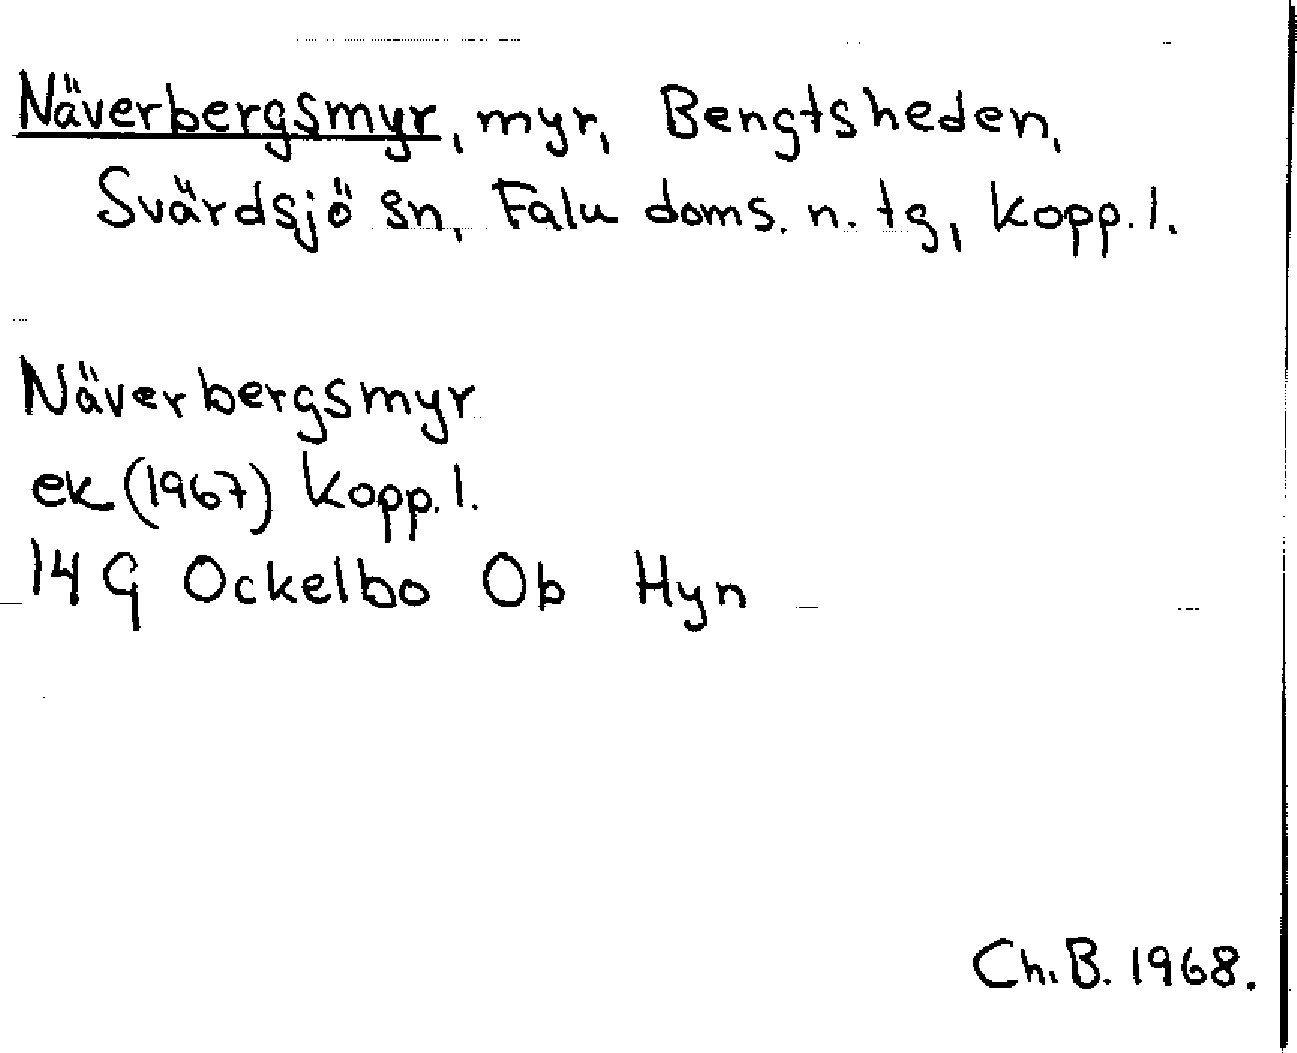 Näverbergsmyr, myr, Bengtsheden,
Svärdsjö sn, Falu doms. n. tg, Kopp. l.
Näverbergsmyr
ek (1967) Kopp. l.
14 G Ockelbo Ob Hyn
Ch. B. 1968.